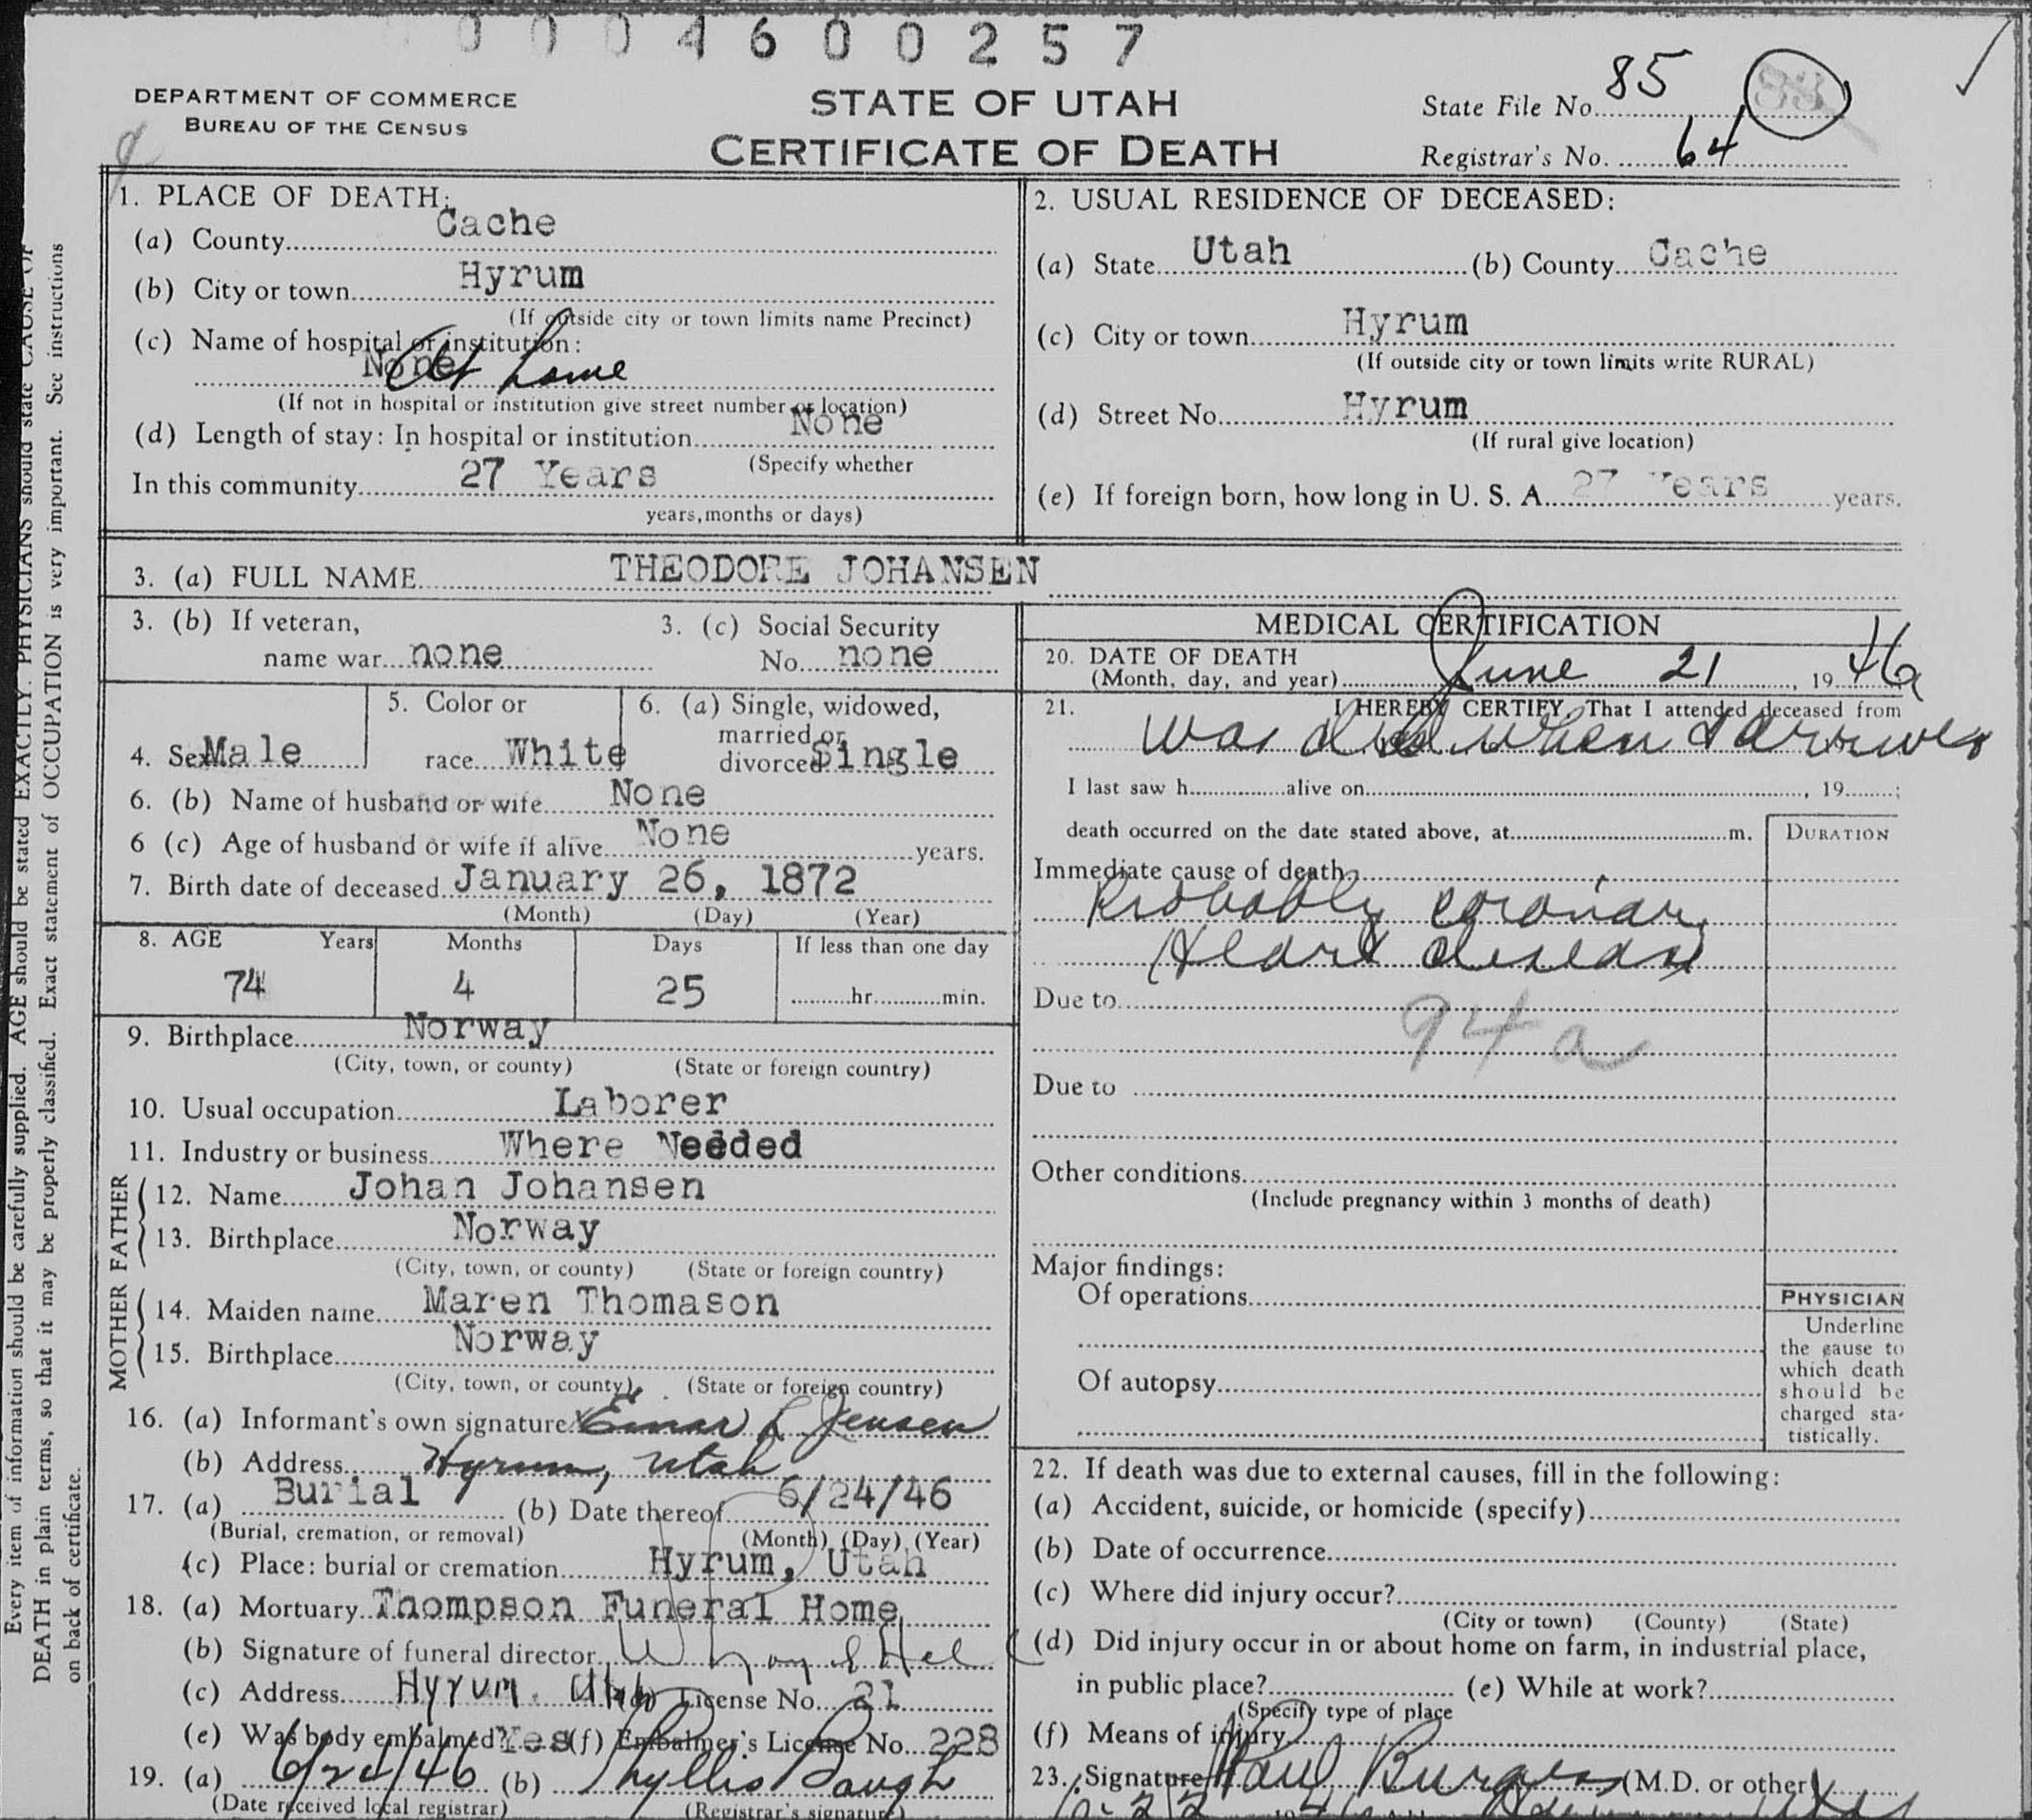 0004600257
DEPARTMENT OF COMMERCE
BUREAU OF THE CENSUS
STATE OF UTAH
CERTIFICATE OF DEATH
State File No. 85
Registrar's No. 64
1. PLACE OF DEATH:
(a) County Cache
(b) City or town Hyrum
(If outside city or town limits name Precinct)
(c) Name of hospital or institution:
None At home
(If not in hospital or institution give street number or location)
(d) Length of stay: In hospital or institution None
(Specify whether
In this community 27 Years
years, months or days)
2. USUAL RESIDENCE OF DECEASED:
(a) State Utah (b) County Cache
(c) City or town Hyrum
(If outside city or town limits write RURAL)
(d) Street No. Hyrum
(If rural give location)
(e) If foreign born, how long in U. S. A. 27 Years years.
3. (a) FULL NAME THEODORE JOHANSEN
3. (b) If veteran,
name war none
3. (c) Social Security
No. none
4. Sex Male
5. Color or
race White
6. (a) Single, widowed,
married or
divorced Single
6. (b) Name of husband or wife None
6 (c) Age of husband or wife if alive None years.
7. Birth date of deceased January 26, 1872
(Month) (Day) (Year)
8. AGE Years Months Days If less than one day
74 4 25 hr. min.
9. Birthplace Norway
(City, town, or county) (State or foreign country)
10. Usual occupation Laborer
11. Industry or business Where Needed
FATHER
12. Name Johan Johansen
13. Birthplace Norway
(City, town, or county) (State or foreign country)
MOTHER
14. Maiden name Maren Thomason
15. Birthplace Norway
(City, town, or county) (State or foreign country)
16. (a) Informant's own signature Einar L Jensen
(b) Address Hyrum, Utah
17. (a) Burial (b) Date thereof 6/24/46
(Burial, cremation, or removal) (Month) (Day) (Year)
(c) Place: burial or cremation Hyrum, Utah
18. (a) Mortuary Thompson Funeral Home
(b) Signature of funeral director
(c) Address Hyrum, Utah (d) License No. 21
(e) Was body embalmed? Yes (f) Embalmer's License No. 228
19. (a) 6/24/46 (b) Phyllis Baugh
(Date received local registrar) (Registrar's signature)
MEDICAL CERTIFICATION
20. DATE OF DEATH
(Month, day, and year) June 21, 1946
21. I HEREBY CERTIFY, That I attended deceased from
was dead when I arrived
I last saw h alive on , 19 ;
death occurred on the date stated above, at m.
DURATION
Immediate cause of death
Probably coronary
Heart disease
Due to
94a
Due to
Other conditions
(Include pregnancy within 3 months of death)
Major findings:
Of operations
Of autopsy
PHYSICIAN
Underline
the cause to
which death
should be
charged sta-
tistically.
22. If death was due to external causes, fill in the following:
(a) Accident, suicide, or homicide (specify)
(b) Date of occurrence
(c) Where did injury occur?
(City or town) (County) (State)
(d) Did injury occur in or about home on farm, in industrial place,
in public place? (e) While at work?
(Specify type of place
(f) Means of injury
23. Signature Paul Burgess (M.D. or other)
Every item of information should be carefully supplied. AGE should be stated EXACTLY. PHYSICIANS should state CAUSE OF
DEATH in plain terms, so that it may be properly classified. Exact statement of OCCUPATION is very important. See instructions
on back of certificate.